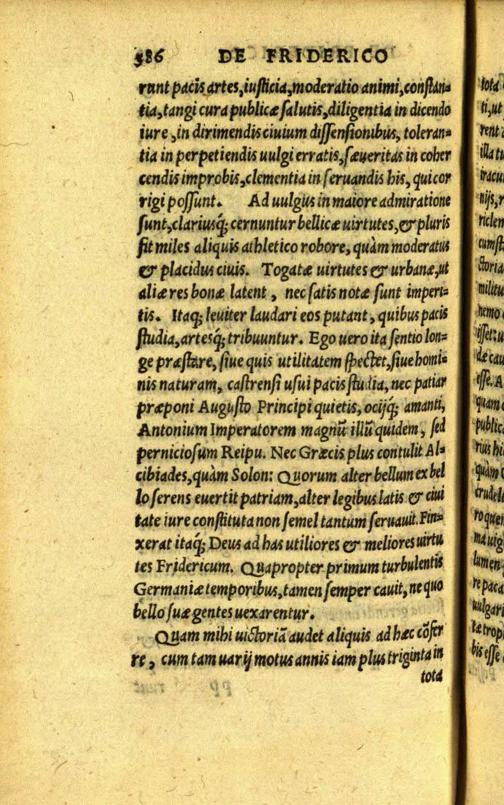 386 DE FRIDERICO
runt pacis artes, iusticia, moderatio animi, constan-
tia, tangi cura publicæ salutis, diligentia in dicendo
iure, in dirimendis ciuium dissensionibus, toleran-
tia in perpetiendis uulgi erratis, sæueritas in coher
cendis improbis, clementia in seruandis his, qui cor
rigi possunt. Ad uulgus in maiore admiratione
sunt, clariusq́; cernuntur bellicæ uirtutes, & pluris
fit miles aliquis athletico robore, quàm moderatus
& placidus ciuis. Togatæ uirtutes & urbanæ, ut
aliæ res bonæ latent, nec satis notæ sunt imperi-
tis. Itaq́; leuiter laudari eos putant, quibus pacis
studia, artesq́; tribuuntur. Ego uero ita sentio lon-
ge præstare, siue quis utilitatem spectet, siue homi-
nis naturam, castrensi usui pacis studia, nec patiar
præponi Augusto Principi quietis, ocijq́; amanti,
Antonium Imperatorem magnū illū quidem, sed
perniciosum Reipu. Nec Græcis plus contulit Al-
cibiades, quàm Solon: Quorum alter bellum ex bel
lo serens euertit patriam, alter legibus latis & ciui
tate iure constituta non semel tantum seruauit. Fin-
xerat itaq́; Deus ad has utiliores & meliores uirtu
tes Fridericum. Quapropter primum turbulentis
Germaniæ temporibus, tamen semper cauit, ne quo
bello suæ gentes uexarentur.
Quam mihi uictoriā audet aliquis ad hæc cōfer
re, cum tam uarij motus annis iam plus triginta in
tota